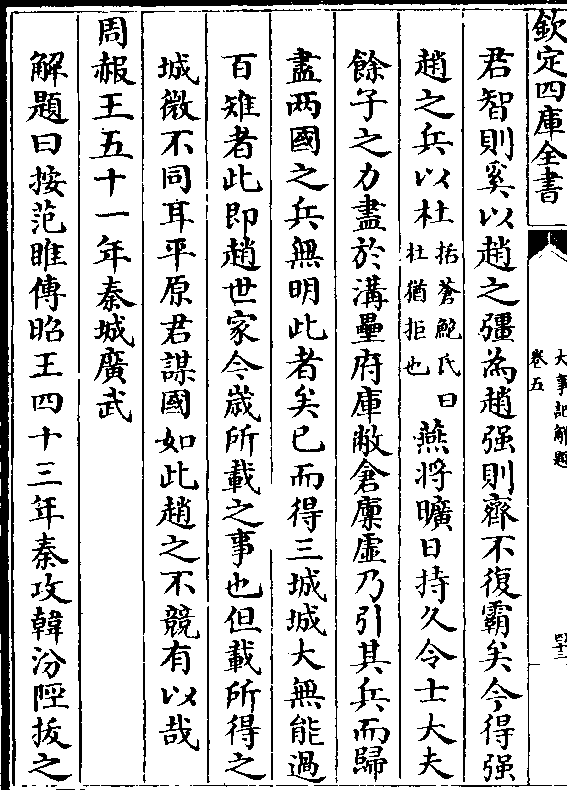 欽定四庫全書
大事記解題
卷五
四十三
君智則奚以趙之彊為趙强則齊不復霸矣今得强
趙之兵以杜括蒼鮑氏曰杜猶拒也燕將曠日持久令士大夫
餘子之力盡於溝壘府庫敝倉廪虛乃引其兵而歸
盡两國之兵無明此者矣已而得三城城大無能過
百雉者此即趙世家今嵗所載之事也但載所得之
城微不同耳平原君謀國如此趙之不競有以哉
周赧王五十一年秦城廣武
解題曰按范睢傳昭王四十三年秦攻韓汾陘拔之